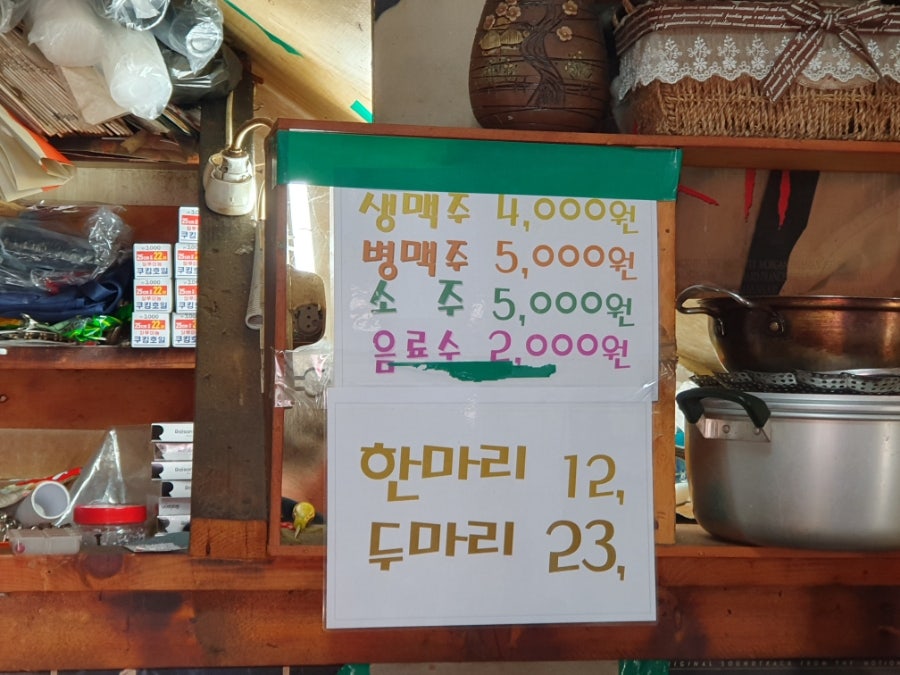 생맥주 4,000원
병맥주 5,000원
소 주 5,000원
음료수 2,000원
한마리 12,
두마리 23,
쿠킹호일
쿠킹호일
쿠킹호일
쿠킹호일